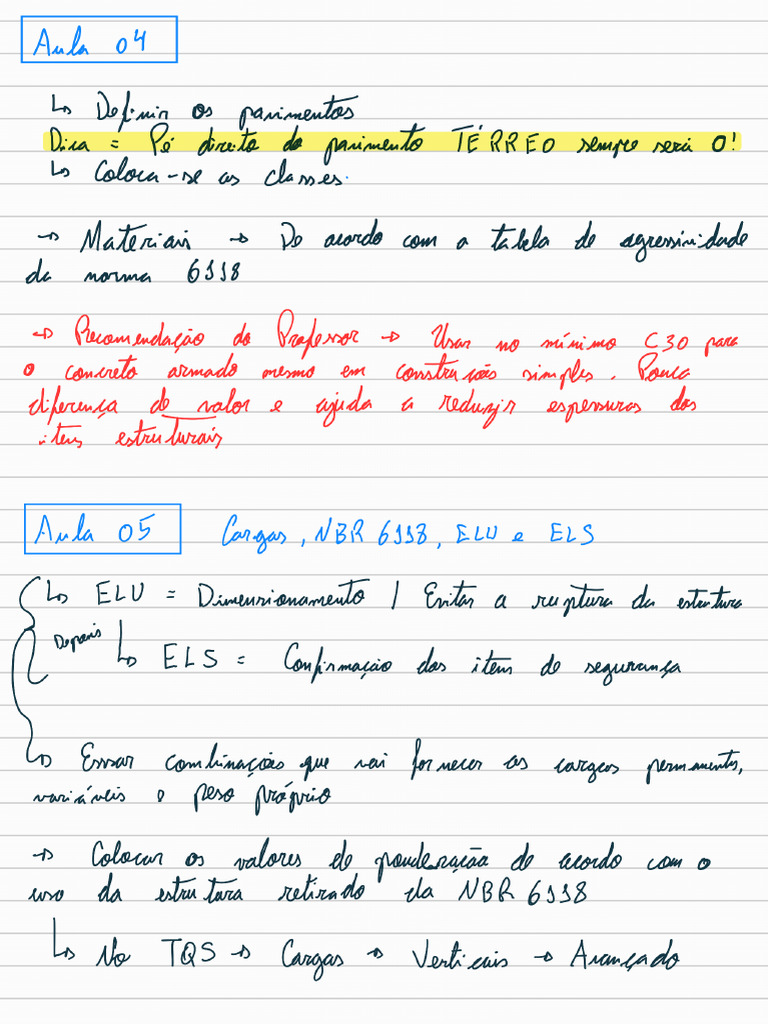 Aula 04
↳ Definir os pavimentos
Dica = Pé direito do pavimento TÉRREO sempre será 0!
↳ Coloca-se as classes.
→ Materiais → De acordo com a tabela de agressividade
da norma 6118
→ Recomendação do Professor → Usar no mínimo C30 para
o concreto armado mesmo em construções simples. Pouca
diferença de valor e ajuda a reduzir espessuras dos
itens estruturais
Aula 05 Cargas, NBR 6118, ELU e ELS
↳ ELU = Dimensionamento / Evitar a ruptura da estrutura
Depois ↳ ELS = Confirmação dos itens de segurança
↳ combinações que vai fornecer as cargas permanentes,
variáveis e peso próprio
→ Colocar os valores de ponderação de acordo com o
uso da estrutura retirado da NBR 6118
↳ No TQS → Cargas → Verticais → Avançado